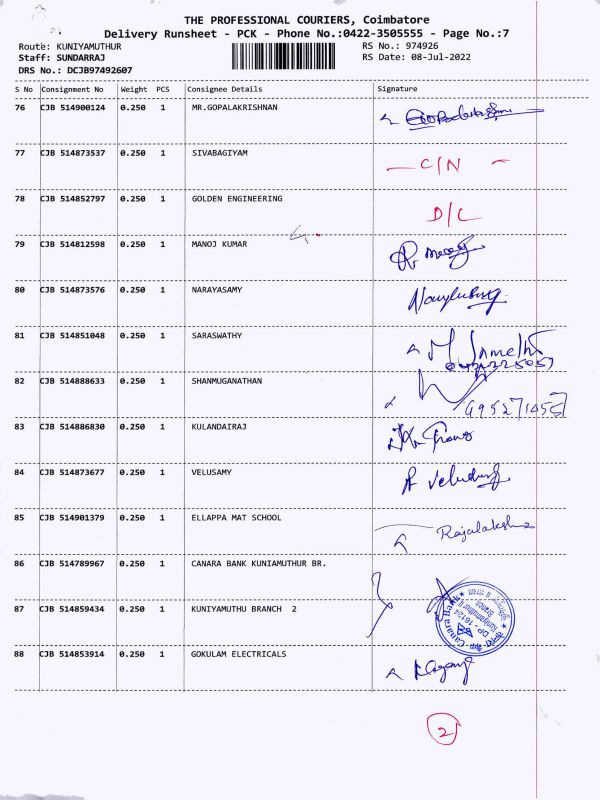 THE PROFESSIONAL COURIERS, Coimbatore
Delivery Runsheet - PCK - Phone No.:0422-3505555 - Page No.:7
Route: KUNIYAMUTHUR RS No.: 974926
Staff: SUNDARRAJ RS Date: 08-Jul-2022
DRS No.: DCJB97492607
S No Consignment No Weight PCS Consignee Details Signature
76 CJB 514900124 0.250 1 MR.GOPALAKRISHNAN
77 CJB 514873537 0.250 1 SIVABAGIYAM C/N
78 CJB 514852797 0.250 1 GOLDEN ENGINEERING D/L
79 CJB 514812598 0.250 1 MANOJ KUMAR
80 CJB 514873576 0.250 1 NARAYASAMY
81 CJB 514851048 0.250 1 SARASWATHY
82 CJB 514888633 0.250 1 SHANMUGANATHAN
83 CJB 514886830 0.250 1 KULANDAIRAJ
84 CJB 514873677 0.250 1 VELUSAMY
85 CJB 514901379 0.250 1 ELLAPPA MAT SCHOOL
86 CJB 514789967 0.250 1 CANARA BANK KUNIAMUTHUR BR.
87 CJB 514859434 0.250 1 KUNIYAMUTHU BRANCH 2
88 CJB 514853914 0.250 1 GOKULAM ELECTRICALS
Canara Bank
2